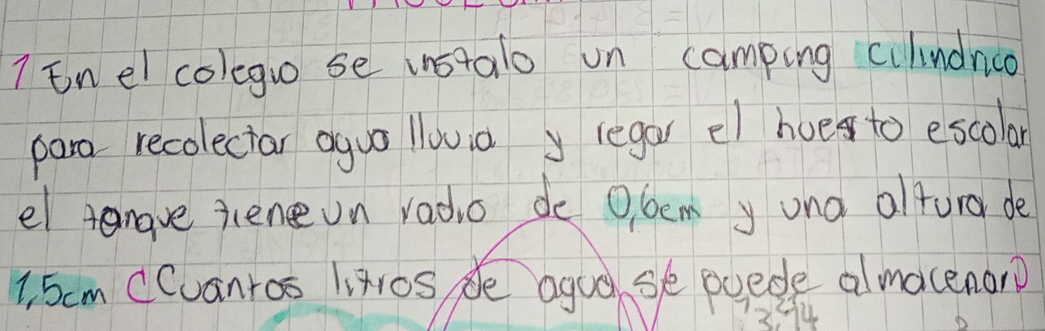 1 En el colegio se instalo un camping cilindrico
para recolectar agua lluvia y regar el huerto escolar
el tanque tiene un radio de 0,6cm y una altura de
1,5cm ¿Cuantos litros de agua se puede almacenar?
3,14